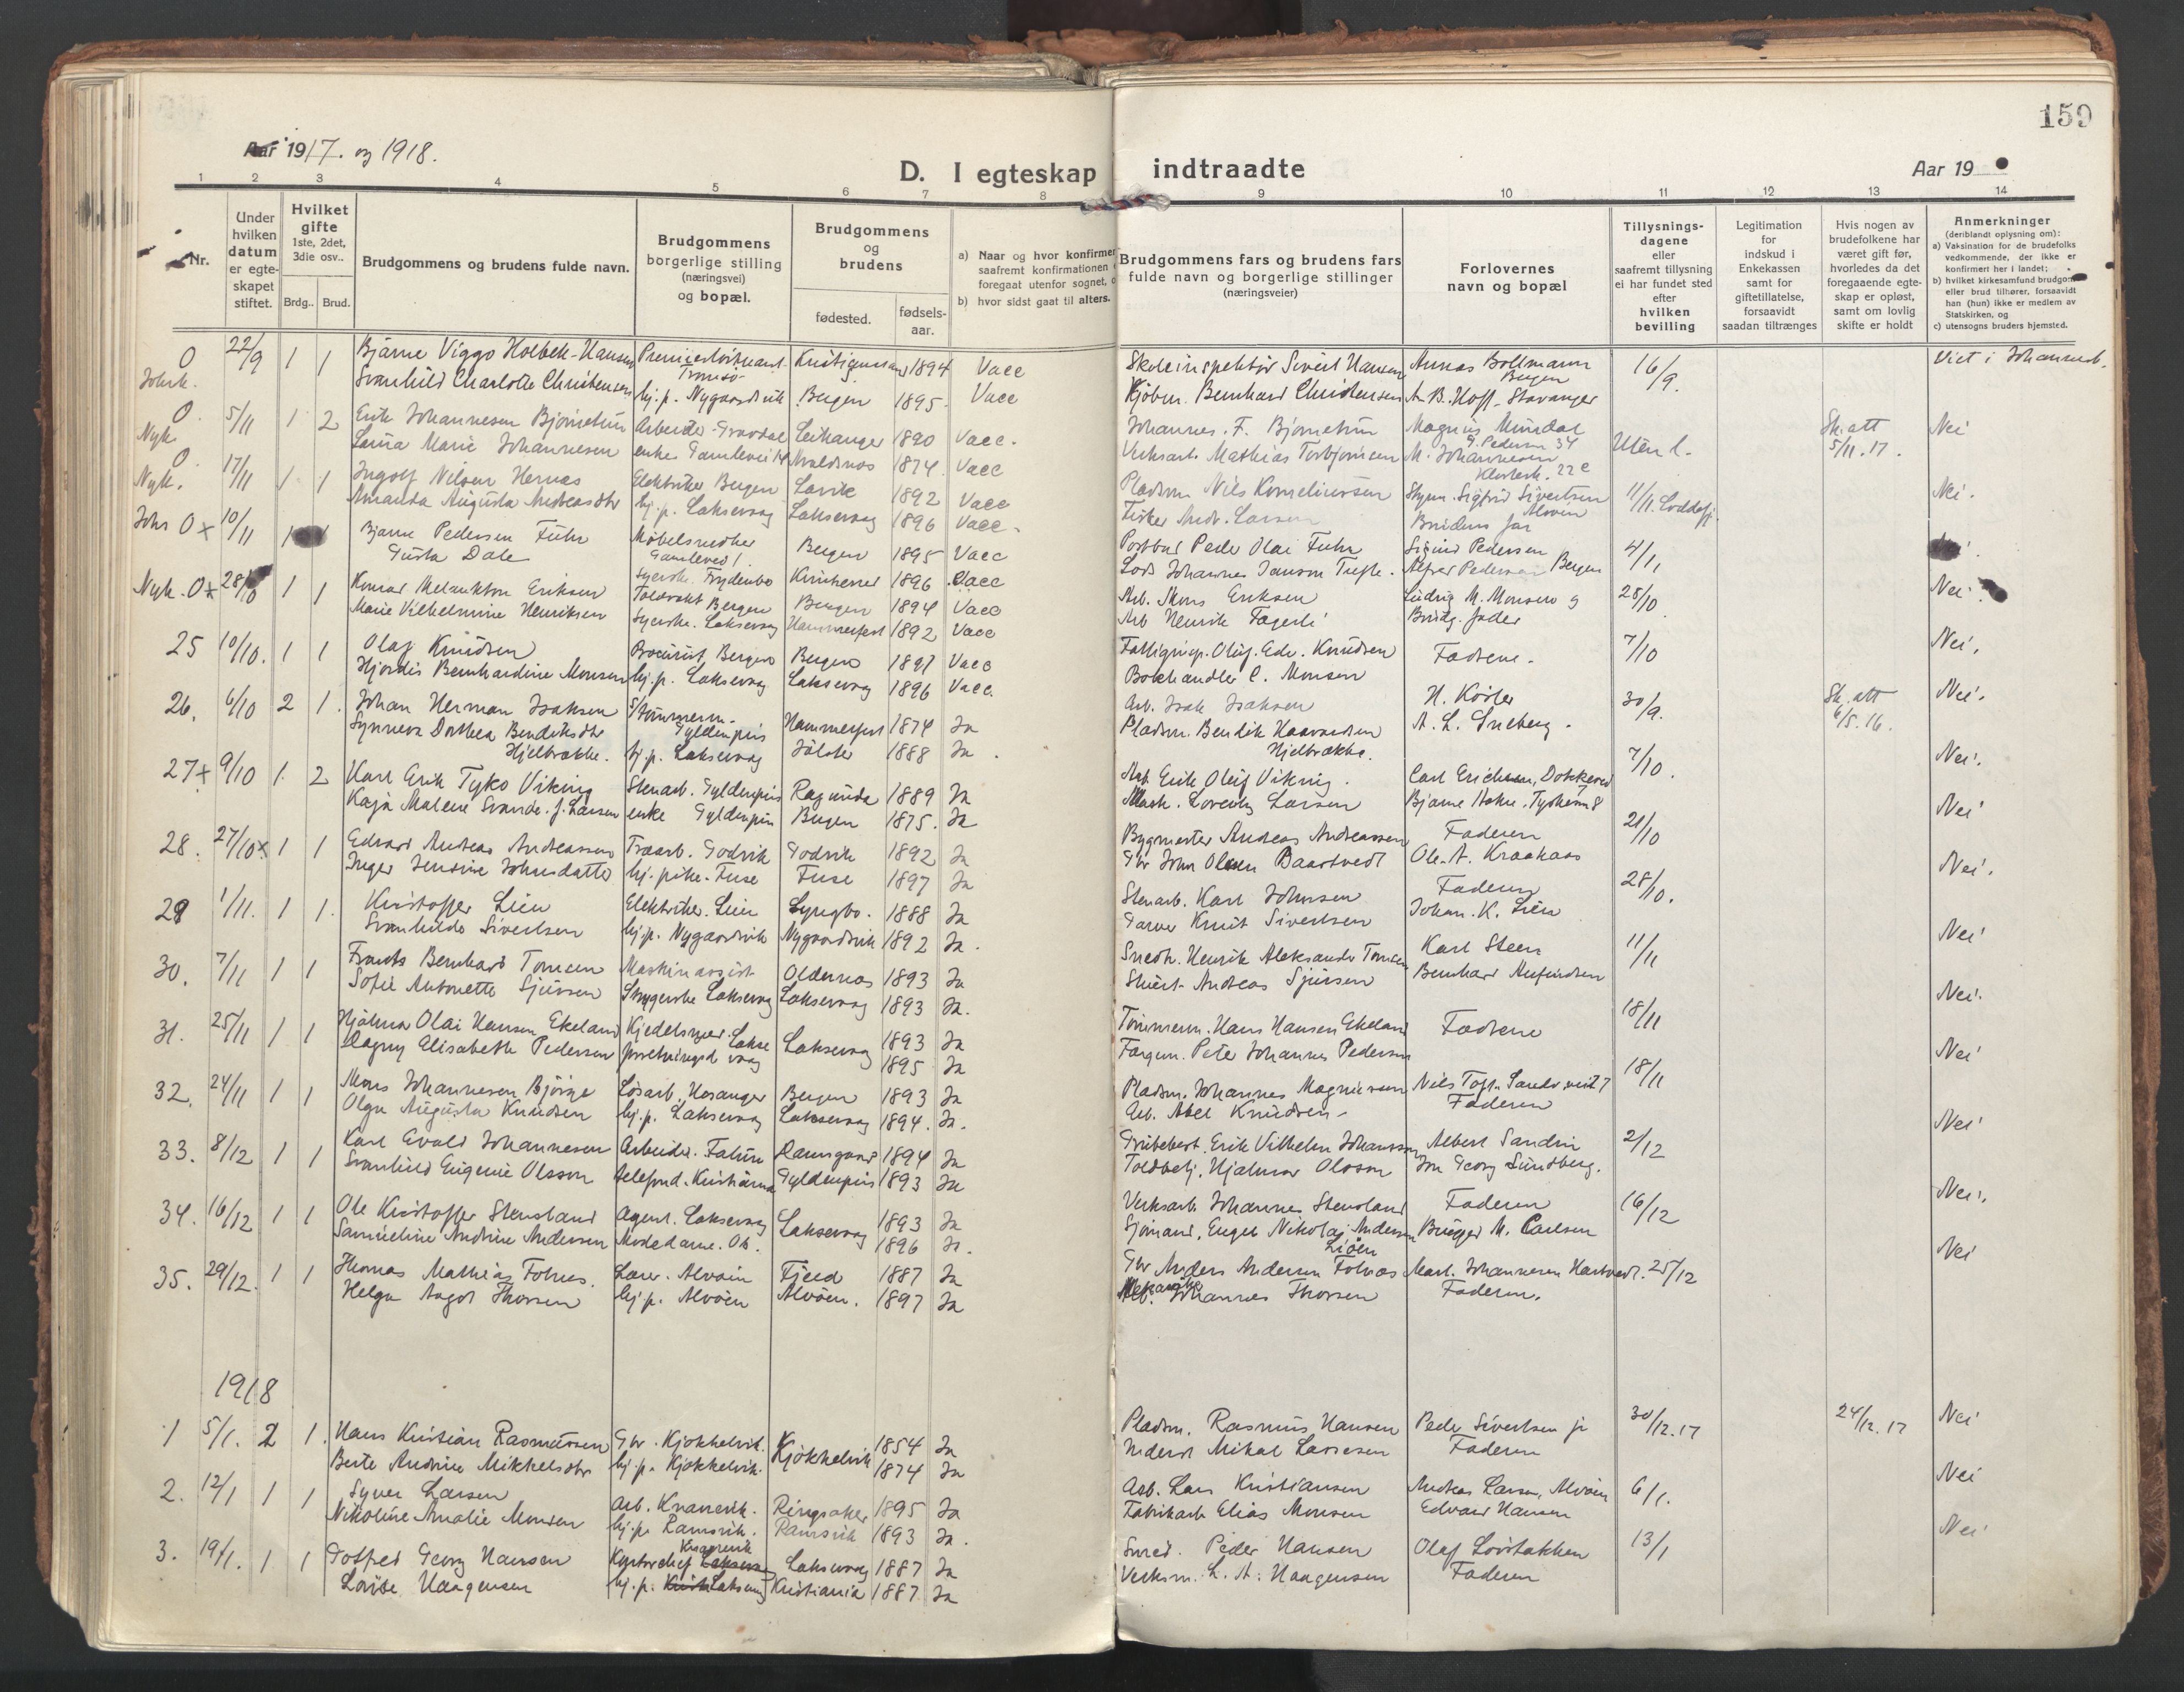 159
Aar 1917. og 1918.
D. I egteskap indtraadte
Aar 19
1 2 3 4 5 6 7 8 9 10 11 12 13 14
Nr.
Under hvilken datum er egteskapet stiftet.
Hvilket gifte 1ste, 2det, 3die osv..
Brdg.. Brud.
Brudgommens og brudens fulde navn.
Brudgommens borgerlige stilling (næringsvei) og bopæl.
Brudgommens og brudens
fødested. fødsels-aar.
a) Naar og hvor konfirmer
saafremt konfirmationen
foregaat utenfor sognet, o
b) hvor sidst gaat til alters.
Brudgommens fars og brudens fars
fulde navn og borgerlige stillinger
(næringsveier)
Forlovernes
navn og bopæl
Tillysnings-
dagene
eller
saafremt tillysning
ei har fundet sted
efter
hvilken
bevilling
Legitimation
for
indskud i
Enkekassen
samt for
giftetillatelse,
forsaavidt
saadan tiltrænges
Hvis nogen av
brudefolkene har
været gift før,
hvorledes da det
foregaaende egte-
skap er opløst,
samt om lovlig
skifte er holdt
Anmerkninger
(deriblandt oplysning om):
a) Vaksination for de brudefolks
vedkommende, der ikke er
konfirmert her i landet;
b) hvilket kirkesamfund brudgom
eller brud tilhører, forsaavidt
han (hun) ikke er medlem av
Statskirken, og
c) utensogns bruders hjemsted.
0 22/9 1 1 Bjarne Viggo Holbek-Hansen Premierløitnant Tromsø Kristiansand 1894 Vacc Skoleinspektør Sivert Hansen Annas Bollmann Bergen 16/9. Viet i Johannesk.
Johk. Svanhild Charlotte Christensen hj.p. Nygaardsvik Bergen 1895 Vacc Kjøbm. Bernhard Christensen A. B. Hoff-Stavanger
0. 5/11 1 2 Erik Johannesen Bjørnetun Arbeider-Gravdal Leikanger 1890 Vacc. Johannes. F. Bjørnetun Magnus Mundal Uten l. Sk. att 5/11.17. Nei
Nyk. Marie Johannesen enke Gamlevei 14 1874. Vacc Verksarb. Mathias Torbjørnsen M. Johannesen
0 17/11 1 1 Ingolf Nilsen Hernes Elektriker Bergen Lavik 1892 Vacc Pladsm. Nils Korneliussen Sigfrid Sivertsen Alvøen 11/11. Loddefj. Nei.
Nyk. Amanda Augusta Andreasdtr hj.p. Laksevaag Laksevaag 1896 Vacc. Fisker Andr. Larsen Brudens far
Joh 0 x 10/11 1 Bjarne Pedersen Fuhr Møbelsnedker Gamlevei 1. Bergen 1895 Vacc Postbud Peder Olai Fuhr Sigurd Pedersen 4/11
Gusta Dale Syerske. Frydenbo Kinsherred 1896 Vacc Lods Johannes Alfred Pedersen Bergen
Nyk. 0x 28/10 1 1 Konrad Melankton Eriksen Toldvakt Bergen Bergen 1894 Vacc Arb. Mons Eriksen Ludvig M. Monsen 28/10 Nei.
Marie Vilhelmine Henriksen Syerske. Laksevaag Hammerfest 1892 Vacc Arb Henrik Fagerli Brudg. fader
25 10/10. 1 1 Olaf Knudsen Bergen Bergen 1897 Vacc Knudsen Fædrene. 7/10 Nei.
Hjordis Bernhardine Monsen hj.p. Laksevaag Laksevaag 1896 Vacc. Bokhandler C. Monsen
26. 6/10 2 1. Johan Herman Isaksen Tømmerm. Gyldenpris Hammerfest 1874 Ja Arb. Isak Isaksen H. Køster 30/9. Sk. att 6/5.16. Nei.
Synneva Dorthea Bendiksdtr Hjelbrække. hj.p. Laksevaag Jølster 1888 Ja. Pladsm. Bendik Haavardsen Hjelbrække. A. L. Sneberg.
27x 9/10 1. 2 Karl Erik Tyko Viking Stenarb. Gyldenpris Ragunda 1889 Ja Arb. Erik Olof Viking. Carl Erichsen, Dokkevei 7/10. Nei.
Kaja Malene Svande. f. Larsen enke Gyldenpris Bergen 1875. Ja Mask. Larsen Bjarne
28. 27/10x 1 1 Edvard Andreas Andreassen Træarb. Godvik Godvik 1892 Ja Bygmester Andreas Andreassen Faderen 21/10 Nei
Inger Jensine Johnsdatter hj.pike-Fuse Fuse 1897 Ja Gbr John Olsen Baastvedt Ole. A. Kraakaas
29 1/11. 1 1. Kristoffer Lien Elektriker. Lien Lyngbo. 1888 Ja Stenarb. Karl Johnsen Faderen 28/10. Nei.
Svanhilde Sivertsen hj.p. Nygaardsvik Nygaardsvik 1892 Ja. Garver Knut Sivertsen Johan. K. Lien
30. 7/11 1 1 Frants Bernhard Tønnesen Maskinassist Oldernes 1893 Ja Snedk. Henrik Aleksander Karl Steen 11/11 Nei
Sofie Antonette Sjursen Strygerske Laksevaag Laksevaag 1893 Ja. Andreas Sjursen Bernhard Anfindsen
31. 25/11 1 1 Hjalmar Olai Hansen Ekeland Kjedelsmed. Lakse Laksevaag 1893 Ja Tømmerm. Hans Hansen Ekeland Fædrene 18/11 Nei.
Dagny Elisabeth Pedersen vaag 1895 Ja Peter Johannes Pedersen
32. 24/11 1 1 Mons Johannesen Bjørge Løsarb. Hosanger Bergen 1893 Ja Pladsm. Johannes Magnussen Nils Sandvveit 7 18/11 Nei
Olga Augusta Knudsen hj.p. Laksevaag Laksevaag 1894. Ja. Arb. Abel Knudsen. Faderen
33. 8/12 1 1 Karl Evald Johannesen Arbeider. Falun Damsgaard 1894 Ja Erik Vilhelm Johansson Albert Sandin 2/12 Nei
Svanhild Eugenie Olsson telefond. Kristiania Gyldenpris 1893 Ja Toldbetj. Hjalmar Olsson Jon Georg Sundberg.
34. 16/12 1 1 Ole Kristoffer Stensland Agent. Laksevaag Laksevaag 1893 Ja Verksarb. Johannes Stensland Faderen 16/12 Nei.
Samueline Andrine Andersen Modedame. Ds. 1896 Ja. Sjømand, Engel Nikolaj Andersen Brygger M. Carlsen
35. 29/12. 1 1 Thomas Mathias Folnes. Alvøen Fjeld 1887 Ja Gbr Anders Andersen Folnes Mart. Johannesen Hartvedt. 25/12 Nei
Helga Aagot Thorsen hj.p. Alvøen Alvøen. 1897 Ja Johannes Thorsen Faderen.
1918
1 5/1. 2 1. Hans Kristian Rasmussen Gbr. Kjøkkelvik. Kjøkkelvik 1854 Ja Pladsm. Rasmus Hansen Peder Sivertsen jr 30/12.17 24/12.17 Nei
Berte Andrine Mikkelsdtr hj.p. Kjøkkelvik. 1874 Ja Mikal Lassesen Faderen
2. 12/1 1 1 Syver Larsen Arb. Knarrevik. Ringsaker 1895 Ja Arb. Lars Kristiansen Andreas Larsen, Alvøen 6/1. Nei
Nikoline Amalie Monsen hj.p. Ramsvik. Ramsvik 1893 Ja. Fabrikarb. Elias Monsen Edvard Hansen
3. 19/1. 1 1 Gotfred Georg Hansen Kontorchef Knarrevik Laksevaag 1887 Ja Smed. Peder Hansen Olaf Løvstakken 13/1 Nei
Lovise Haagensen hj.p. Laksevaag Kristiania 1887 Ja Verksm. L. A. Haagensen Faderen